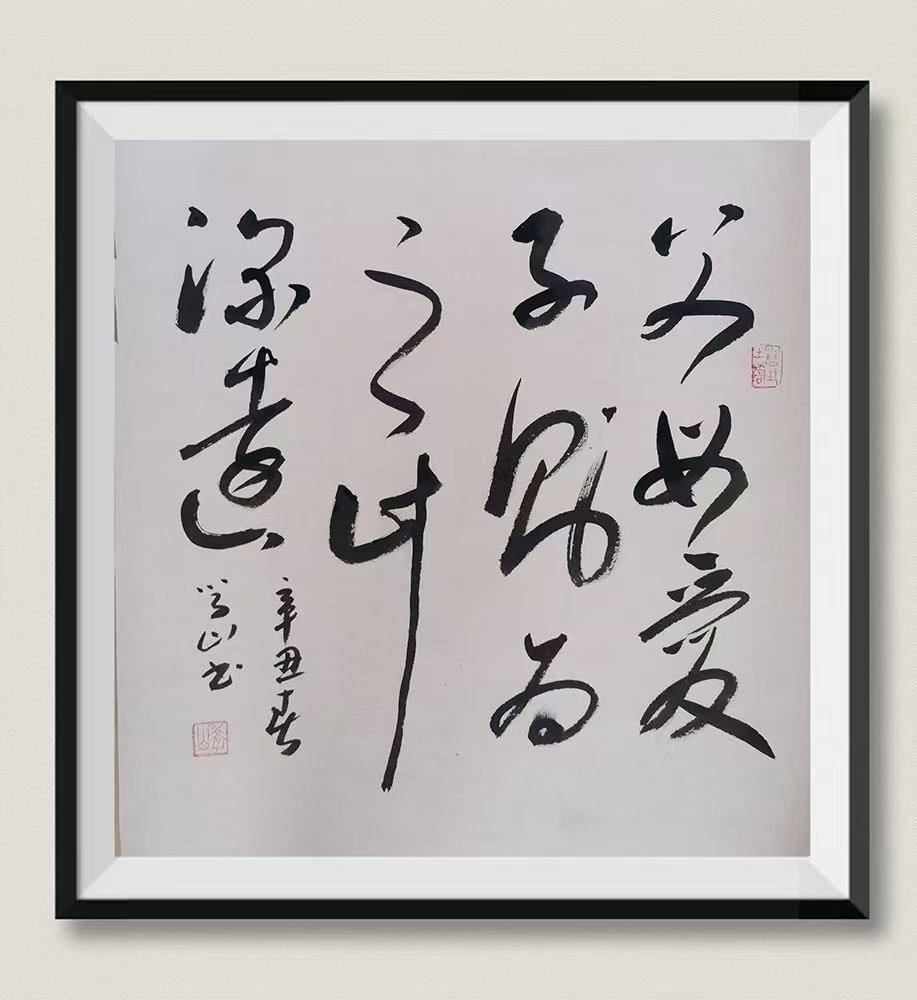 父母爱
子则为
之计
深远
辛丑春
嵩山书